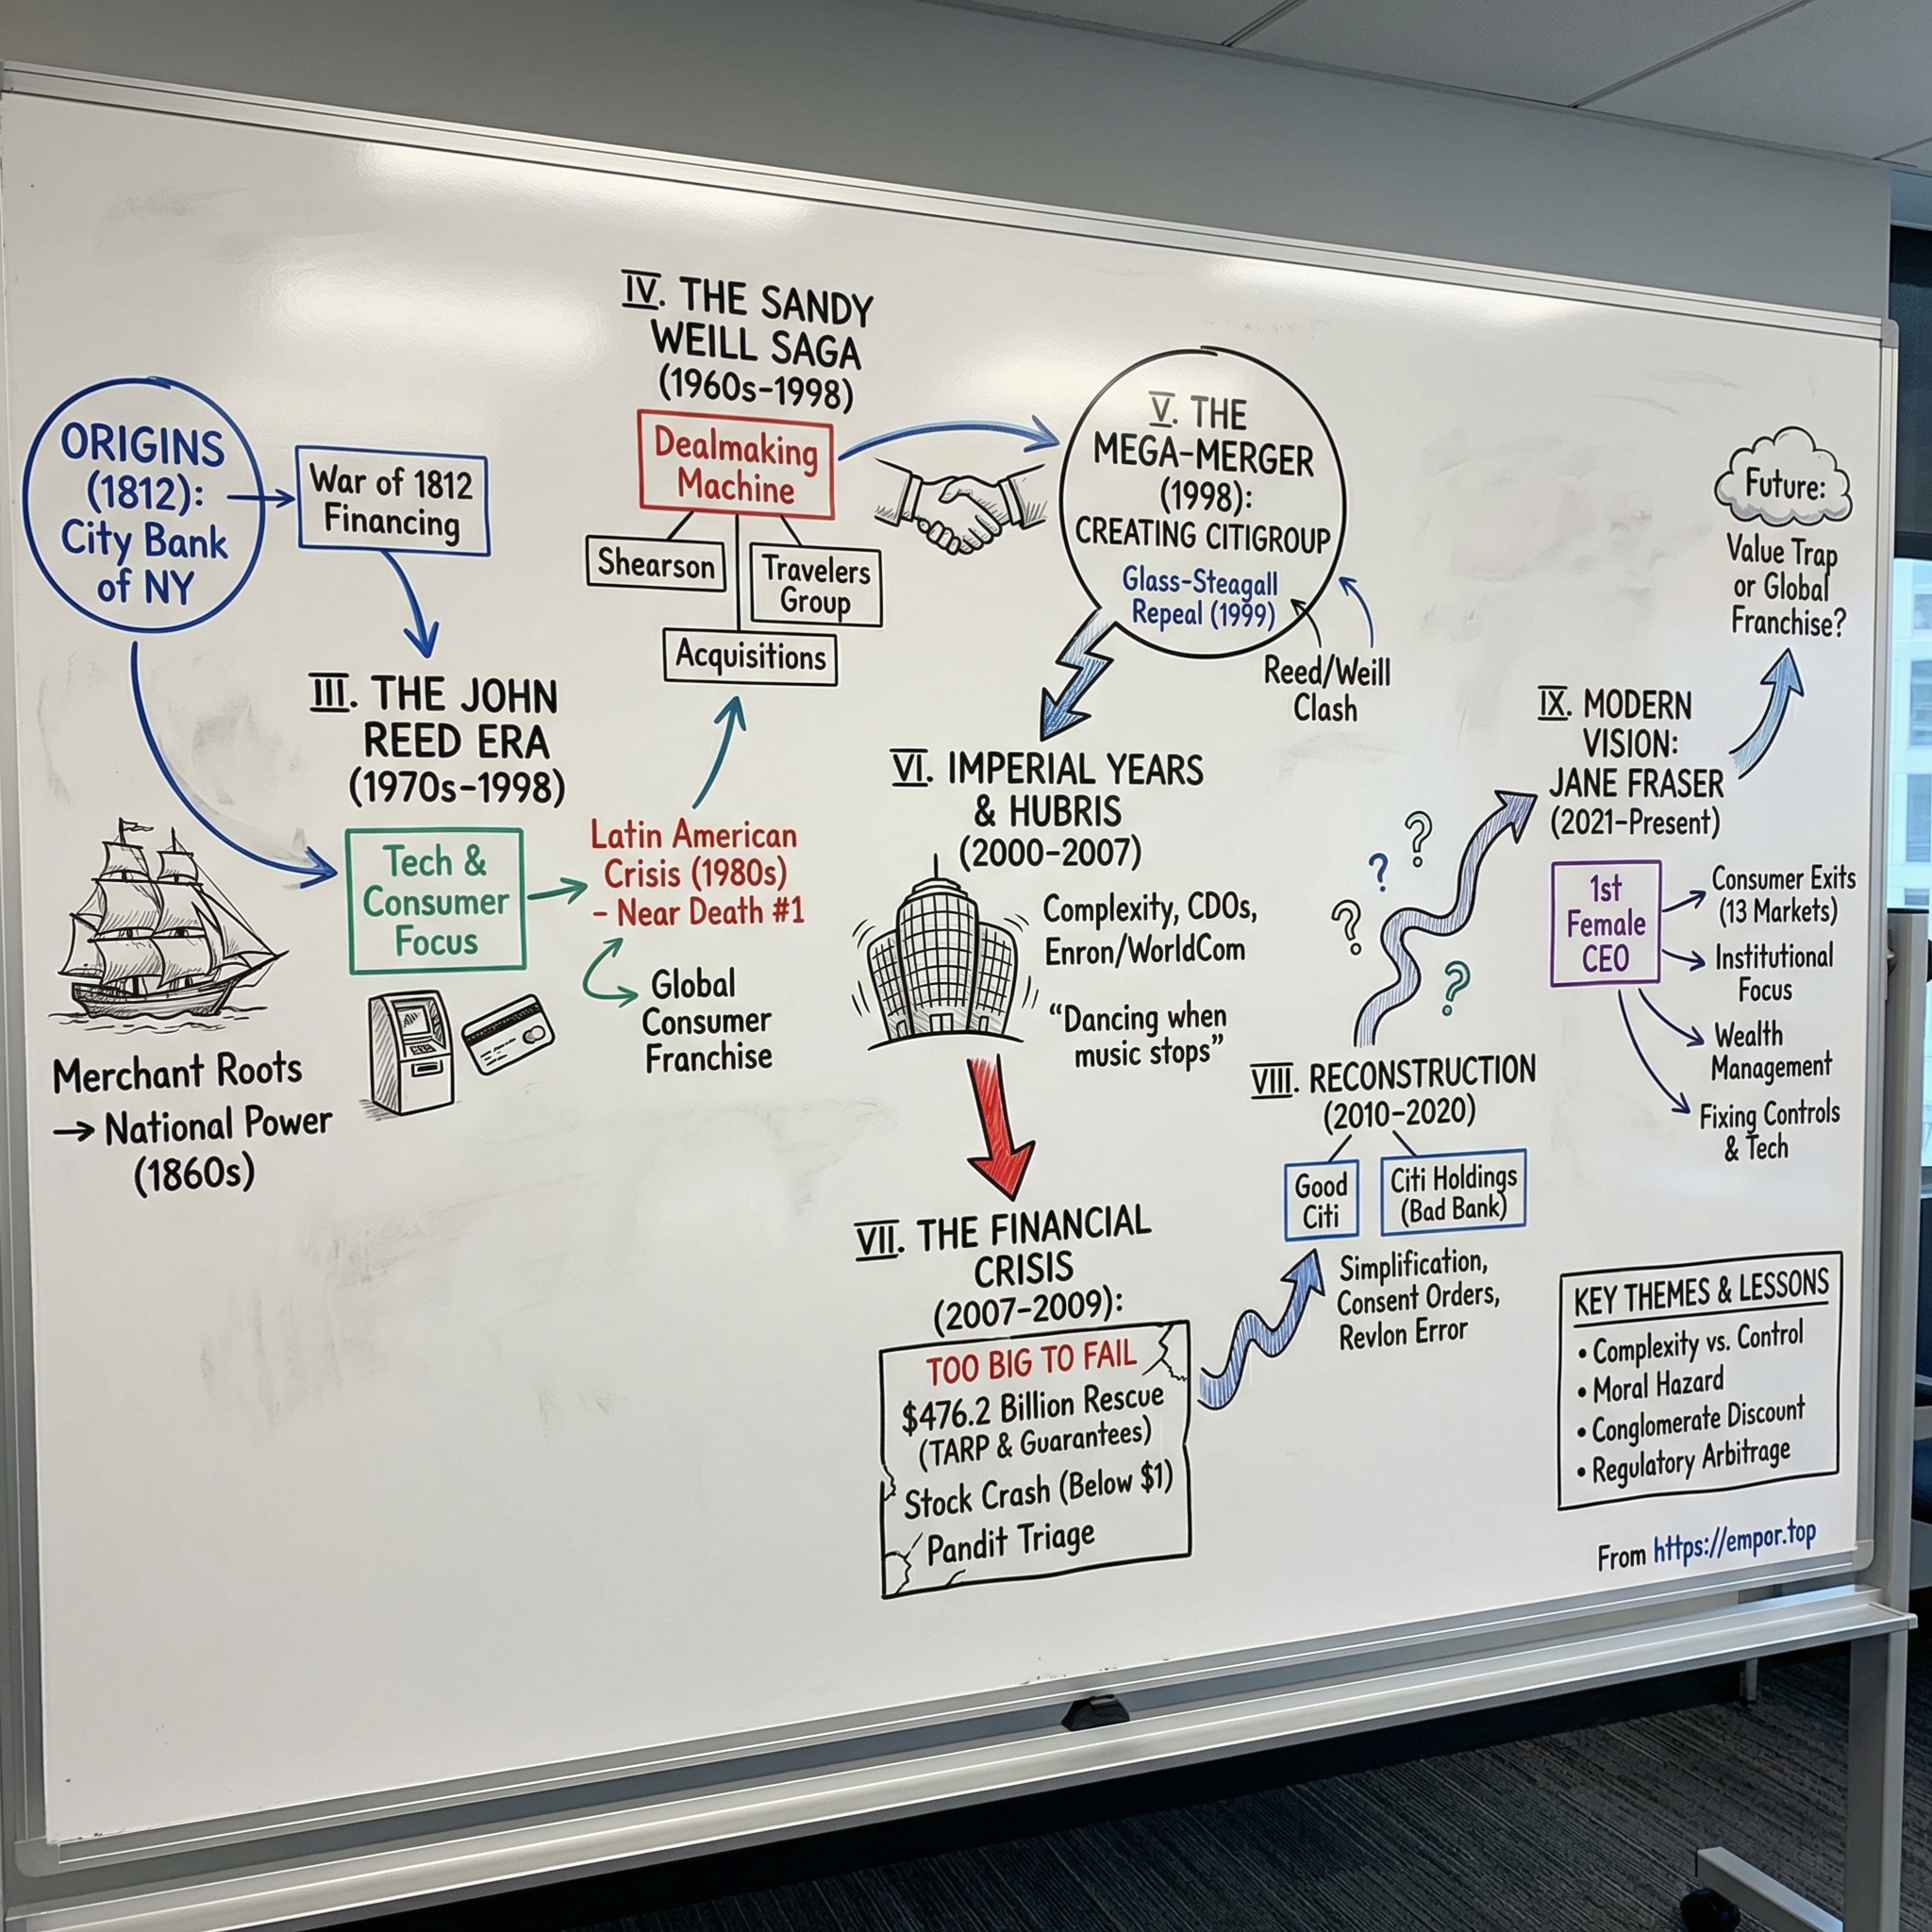 ORIGINS
(1812):
City Bank
of NY
War of 1812
Financing
Merchant Roots
→ National Power
(1860s)
III. THE JOHN
REED ERA
(1970s-1998)
Tech &
Consumer
Focus
Latin American
Crisis (1980s)
- Near Death #1
Global
Consumer
Franchise
IV. THE SANDY
WEILL SAGA
(1960s-1998)
Dealmaking
Machine
Shearson
Travelers
Group
Acquisitions
V. THE
MEGA-MERGER
(1998):
CREATING CITIGROUP
Glass-Steagall
Repeal (1999)
Reed/Weill
Clash
VI. IMPERIAL YEARS
& HUBRIS
(2000-2007)
Complexity, CDOs,
Enron/WorldCom
“Dancing when
music stops”
VII. THE FINANCIAL
CRISIS
(2007-2009):
TOO BIG TO FAIL
$476.2 Billion Rescue
(TARP & Guarantees)
Stock Crash (Below $1)
Pandit Triage
VIII. RECONSTRUCTION
(2010-2020)
Good
Citi
Citi Holdings
(Bad Bank)
Simplification,
Consent Orders,
Revlon Error
? ? ? ?
IX. MODERN
VISION:
JANE FRASER
(2021-Present)
1st
Female
CEO
Consumer Exits
(13 Markets)
Institutional
Focus
Wealth
Management
Fixing Controls
& Tech
Future:
Value Trap
or Global
Franchise?
KEY THEMES & LESSONS
• Complexity vs. Control
• Moral Hazard
• Conglomerate Discount
• Regulatory Arbitrage
From https://empor.top